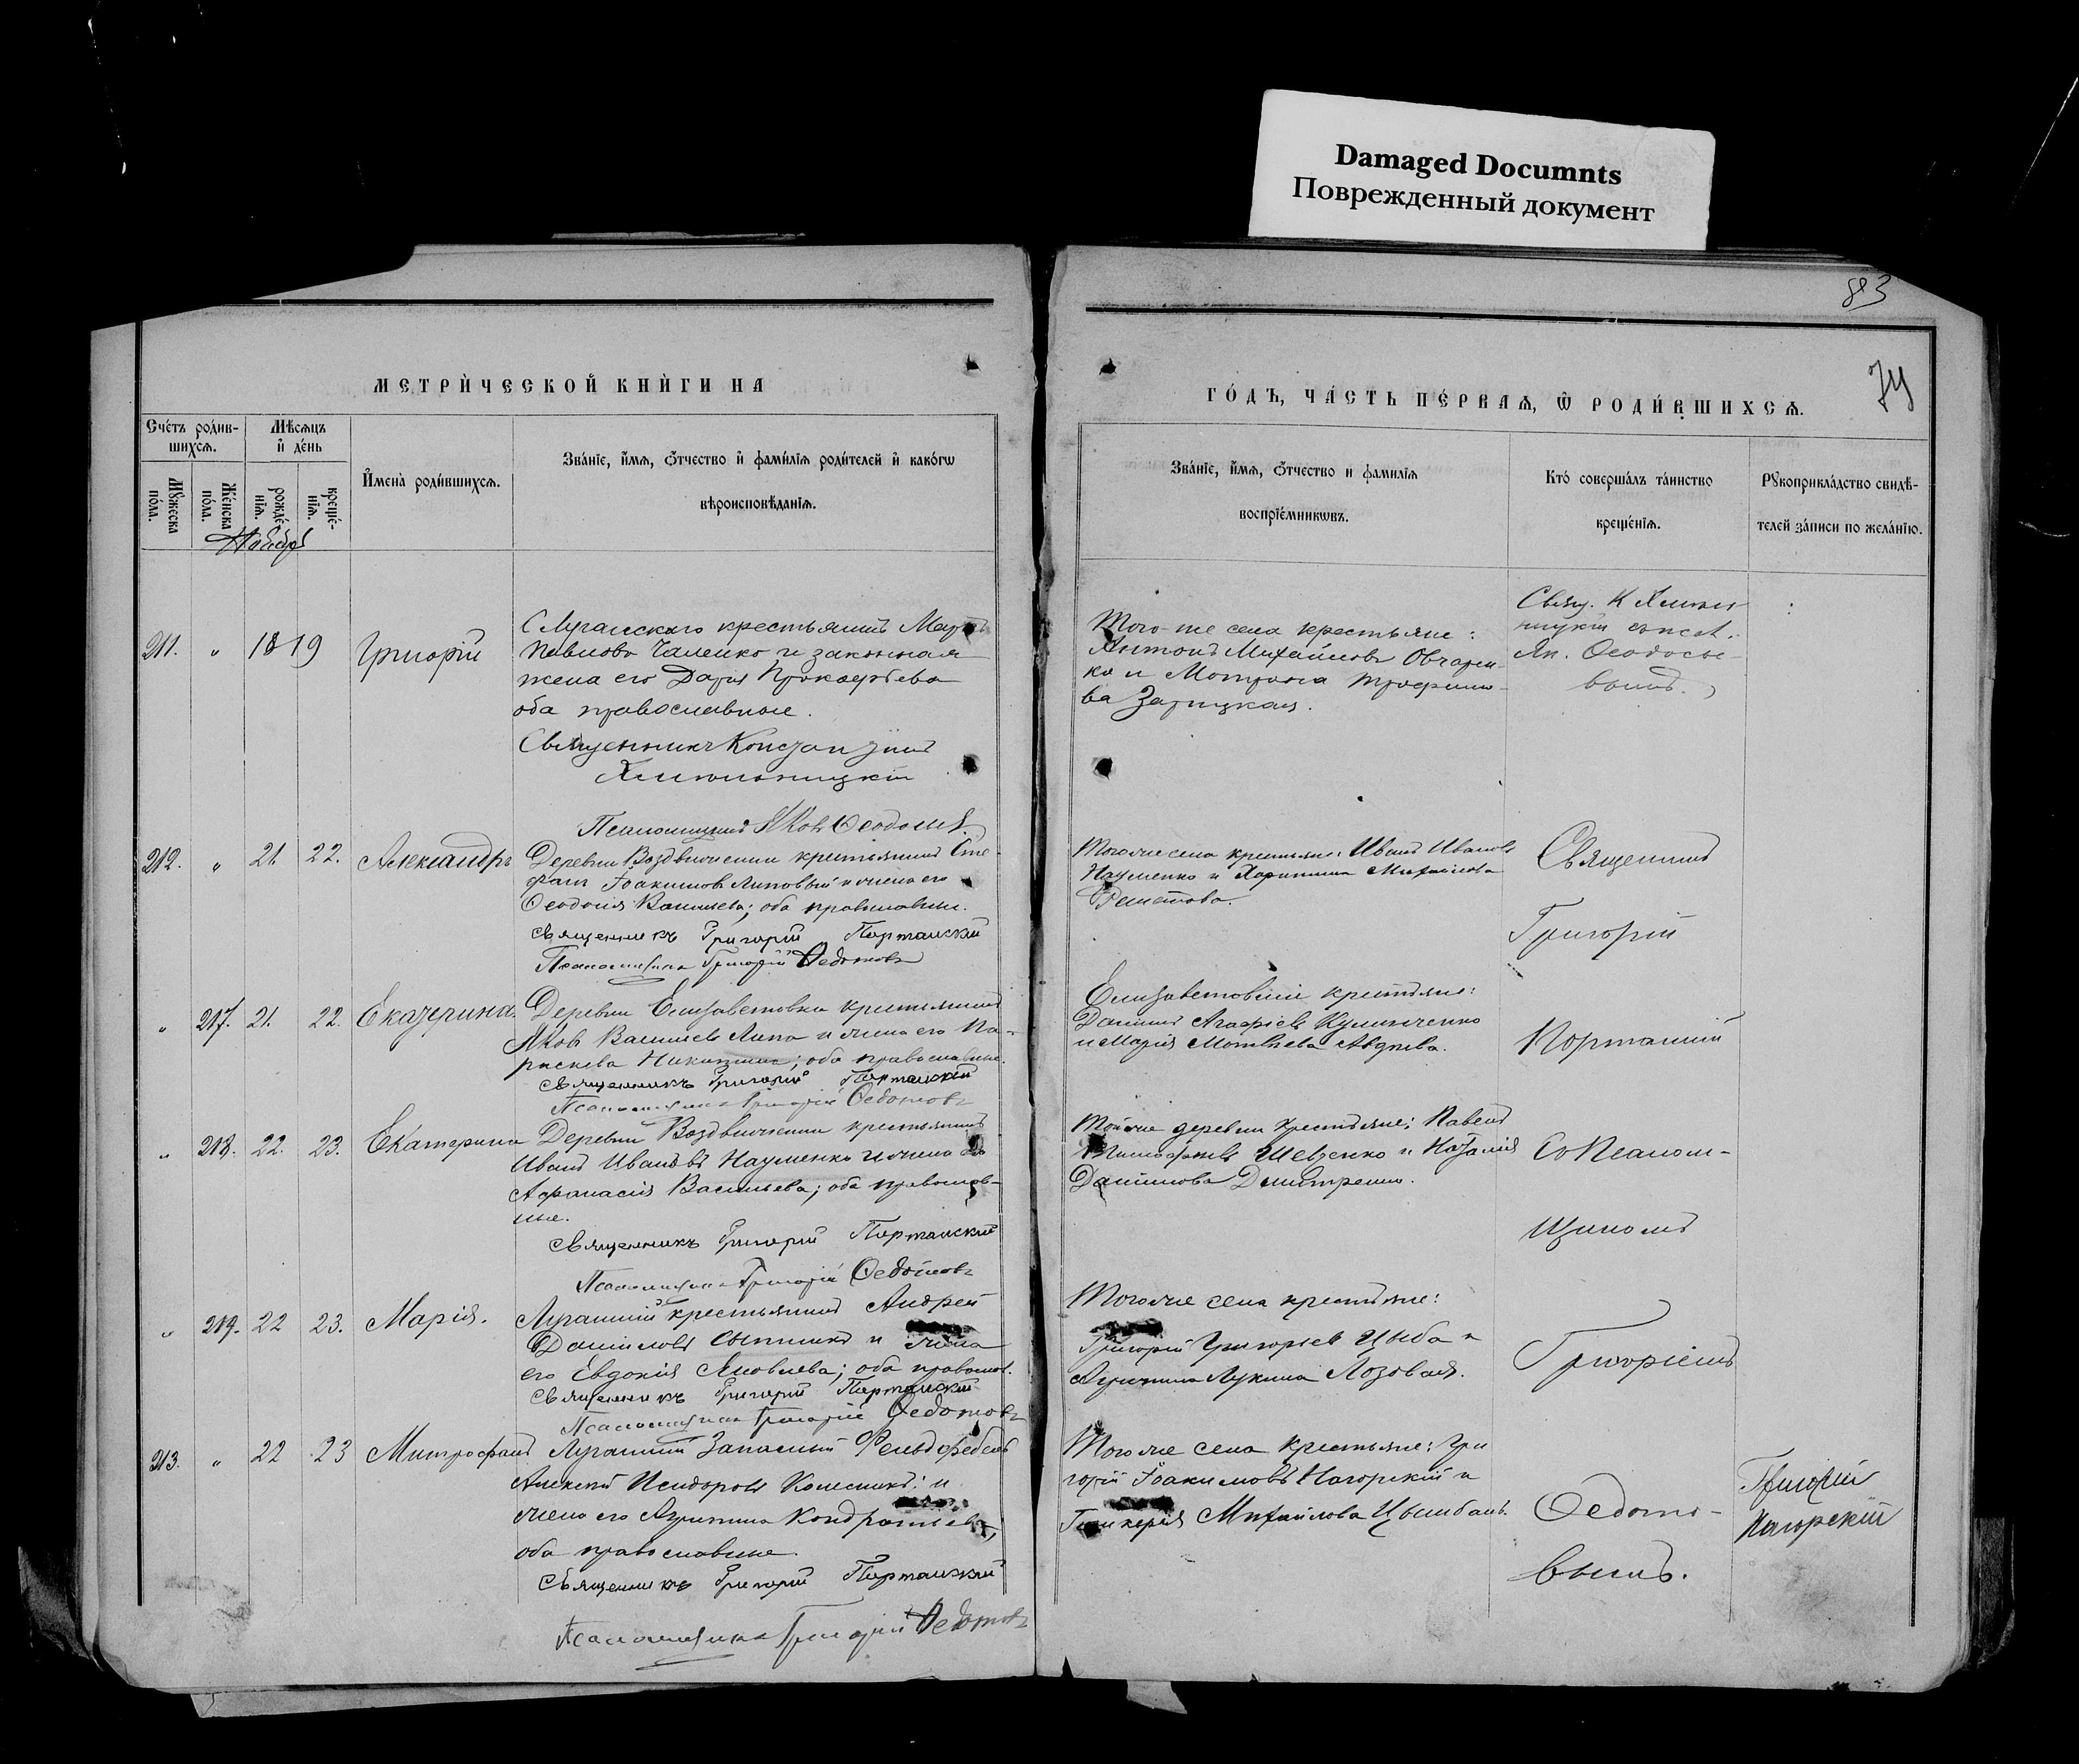 Damaged Documnts
Поврежденный документ
83
74
МЕТРИ́ЧЕСКОЙ КНИ́ГИ НА
ГО́ДЪ, ЧА́СТЬ ПЕ́РВАѦ, Ѿ РОДИ́ВШИХСѦ.
Сче́тъ роди́в-
шихсѧ.
Мѣ́сѧцъ
и҆ де́нь
Мꙋ́жеска
по́ла.
Же́нска
по́ла.
рожде́-
нїѧ.
креще́-
нїѧ.
И҆мена̀ роди́вшихсѧ.
Зва́нїе, и҆́мѧ, ѻ҆́тчество и҆ фами́лїѧ роди́телей и҆ како́гѡ
вѣроисповѣ́данїѧ.
Зва́нїе, и҆́мѧ, ѻ҆́тчество и фами́лїѧ
воспрїе́мникѡвъ.
Кто́ соверша́лъ та́инство
креще́нїѧ.
Рꙋкоприкла́дство свидѣ́-
телей за́писи по жела́нїю.
Ноябрь
211. " 18 19 Григорій
С Луганскаго крестьянинъ
Павловъ и законная
жена его Дарья Прокофьева
оба православные.
Священникъ Константинъ
Хмельницкій
Того-же села крестьяне:
Антонъ Михайловъ Овчарен-
ко и Матрона Трофимо-
ва Зарицкая.
Свящ. К Хмель
ницкій съ псал.
Як. Ѳеодосье-
вымъ.
Псаломщикъ Яковъ
212. " 21. 22. Александръ
Деревни Воздвиженки крестьянинъ Сте-
фанъ Іоакимовъ Липовый и жена его
Ѳеодосія Васильева; оба православные.
Священникъ Григорій Портанскій
Псаломщикъ Григорій Ѳедотовъ
Того же села крестьяне: Иванъ Ивановъ
Науменко и Харитина Михайлова
Священникъ
Григорій
" 217. 21. 22. Екатерина.
Деревни Елизаветовки крестьянинъ
Яковъ Васильевъ Липа и жена его Па-
раскева Никитина; оба православные.
Священникъ Григорій Портанскій
Псаломщикъ Григорій Ѳедотовъ
Елизаветовскіе крестьяне:
Даніилъ Агафіевъ Кулинченко
и Марія Матвѣева
Портанскій
" 218. 22. 23. Екатерина
Деревни Воздвиженки крестьянинъ
Иванъ Ивановъ Науменко и жена его
Афанасія Васильева; оба православ-
ные.
Священникъ Григорій Портанскій
Псаломщикъ Григорій Ѳедотовъ
Той же деревни крестьяне: Павелъ
Шевченко и Наталія
Даніилова Дмитренко.
Съ Псалом-
щикомъ
" 219. 22 23. Марія.
Луганскій крестьянинъ Андрей
Даніиловъ Сытникъ и жена
его Евдокія Яковлева; оба православ.
Священникъ Григорій Портанскій
Псаломщикъ Григорій Ѳедотовъ
Того же села крестьяне:
Григорій Григорьевъ Цыба и
Агрипина Лукина Лозовая.
Григоріемъ
213. " 22 23 Митрофанъ
Луганскій Запасный Фельдфебель
Алексѣй Исидоровъ Колесникъ и
жена его Агрипина Кондратьева;
оба православные.
Священникъ Григорій Портанскій
Псаломщикъ Григорій Ѳедотовъ
Того же села крестьяне: Гри
горій Іоакимовъ Нагорскій и
Гликерія Михайлова Цымбалъ.
Ѳедото-
вымъ.
Григорій
Нагорскій